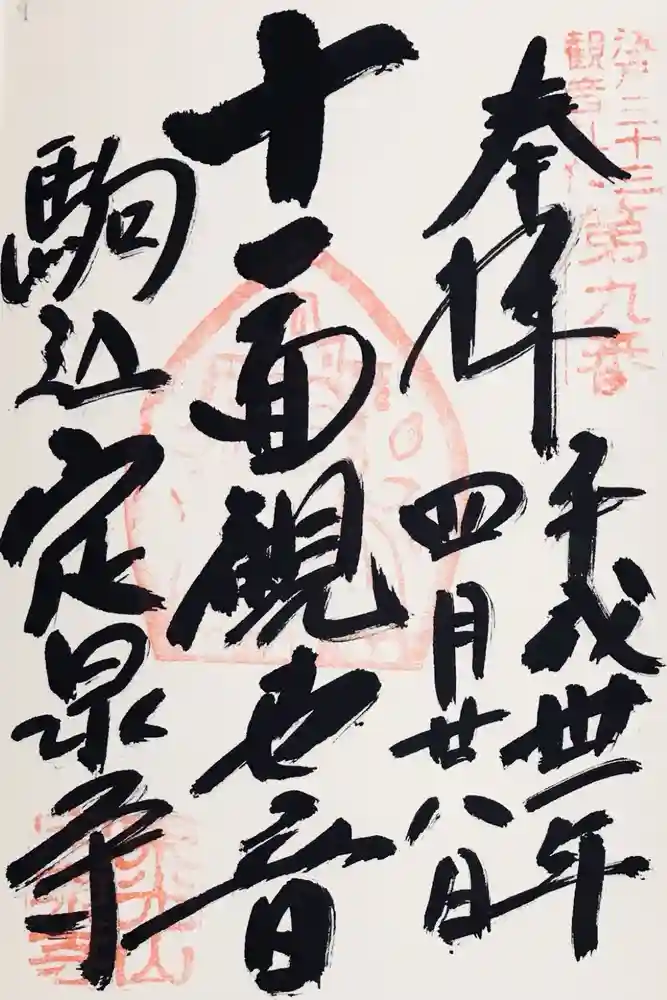 江戸三十三
観音札所
第九番
奉拝
平成卅一年
四月廿八日
十一面観世音
駒込定泉寺